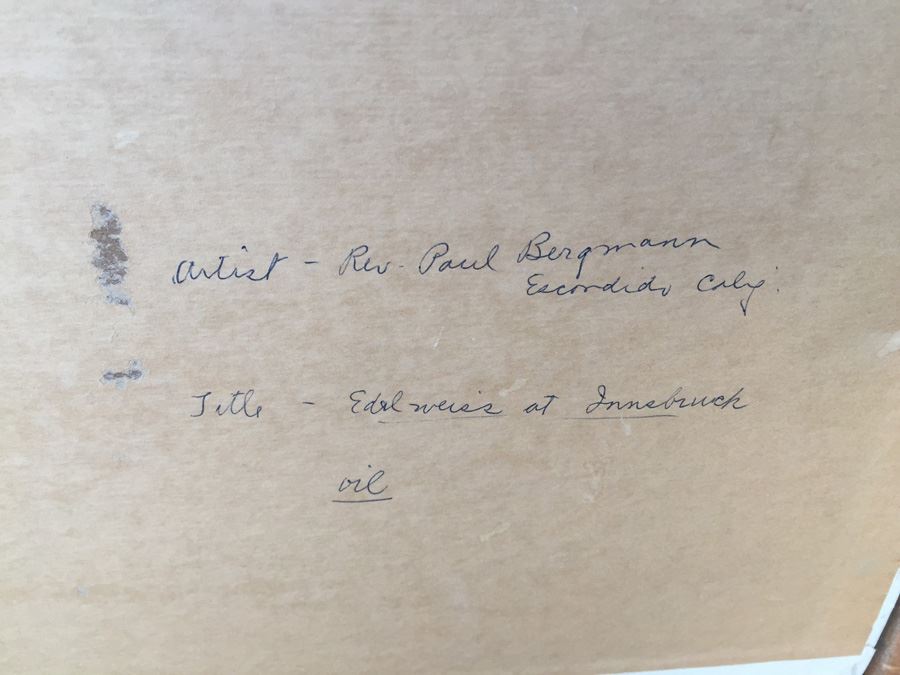 Artist - Rev. Paul Bergmann
Escondido Calif.
Title - Edelweiss at Innsbruck
oil